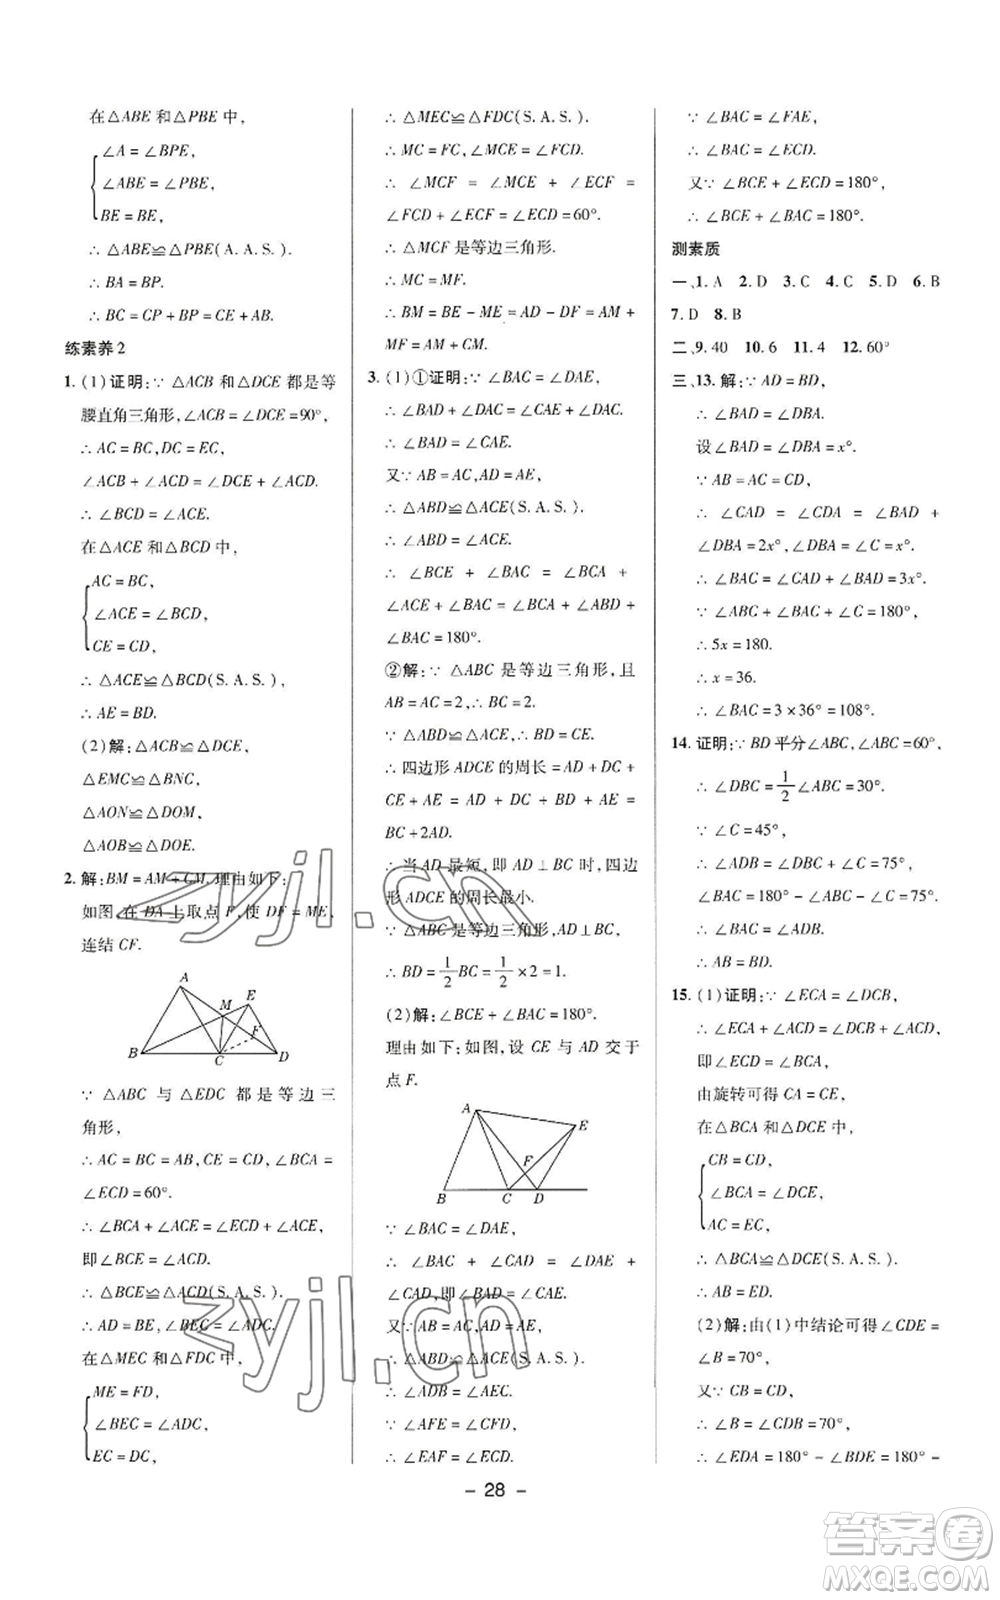 在△ABE和△PBE中,
∠A=∠BPE,
∠ABE=∠PBE,
BE=BE,
∴△ABE≌△PBE(A.A.S.).
∴BA=BP.
∴BC=CP+BP=CE+AB.
练素养2
1.(1)证明:∵△ACB和△DCE都是等
腰直角三角形,∠ACB=∠DCE=90°,
∴AC=BC,DC=EC,
∠ACB+∠ACD=∠DCE+∠ACD.
∴∠BCD=∠ACE.
在△ACE和△BCD中,
AC=BC,
∠ACE=∠BCD,
CE=CD,
∴△ACE≌△BCD(S.A.S.).
∴AE=BD.
(2)解:△ACB≌△DCE,
△EMC≌△BNC,
△AON≌△DOM,
△AOB≌△DOE.
2.解:BM=AM+CM,理由如下:
如图,在DA上取点F,使DF=ME,
连结CF.
A
E
M
F
B
C
D
∵△ABC与△EDC都是等边三
角形,
∴AC=BC=AB,CE=CD,∠BCA=
∠ECD=60°.
∴∠BCA+∠ACE=∠ECD+∠ACE,
即∠BCE=∠ACD.
∴△BCE≌△ACD(S.A.S.).
∴AD=BE,∠BEC=∠ADC.
在△MEC和△FDC中,
ME=FD,
∠BEC=∠ADC,
EC=DC,
∴△MEC≌△FDC(S.A.S.).
∴MC=FC,∠MCE=∠FCD.
∴∠MCF=∠MCE+∠ECF=
∠FCD+∠ECF=∠ECD=60°.
∴△MCF是等边三角形.
∴MC=MF.
∴BM=BE-ME=AD-DF=AM+
MF=AM+CM.
3.(1)①证明:∵∠BAC=∠DAE,
∴∠BAD+∠DAC=∠CAE+∠DAC.
∴∠BAD=∠CAE.
又∵AB=AC,AD=AE,
∴△ABD≌△ACE(S.A.S.).
∴∠ABD=∠ACE.
∴∠BCE+∠BAC=∠BCA+
∠ACE+∠BAC=∠BCA+∠ABD+
∠BAC=180°.
②解:∵△ABC是等边三角形,且
AB=AC=2,∴BC=2.
∵△ABD≌△ACE,∴BD=CE.
∴四边形ADCE的周长=AD+DC+
CE+AE=AD+DC+BD+AE=
BC+2AD.
∴当AD最短,即AD⊥BC时,四边
形ADCE的周长最小.
∵△ABC是等边三角形,AD⊥BC,
∴BD=1/2BC=1/2×2=1.
(2)解:∠BCE+∠BAC=180°.
理由如下:如图,设CE与AD交于
点F.
A
E
F
B
C
D
∵∠BAC=∠DAE,
∴∠BAC+∠CAD=∠DAE+
∠CAD,即∠BAD=∠CAE.
又∵AB=AC,AD=AE,
∴△ABD≌△ACE(S.A.S.).
∴∠ADB=∠AEC.
∵∠AFE=∠CFD,
∴∠EAF=∠ECD.
∵∠BAC=∠FAE,
∴∠BAC=∠ECD.
又∵∠BCE+∠ECD=180°,
∴∠BCE+∠BAC=180°.
测素质
一、1.A 2.D 3.C 4.C 5.D 6.B
7.D 8.B
二、9.40 10.6 11.4 12.60°
三、13.解:∵AD=BD,
∴∠BAD=∠DBA.
设∠BAD=∠DBA=x°.
∵AB=AC=CD,
∴∠CAD=∠CDA=∠BAD+
∠DBA=2x°,∠DBA=∠C=x°.
∴∠BAC=∠CAD+∠BAD=3x°.
∵∠ABC+∠BAC+∠C=180°,
∴5x=180.
∴x=36.
∴∠BAC=3×36°=108°.
14.证明:∵BD平分∠ABC,∠ABC=60°,
∴∠DBC=1/2∠ABC=30°.
∵∠C=45°,
∴∠ADB=∠DBC+∠C=75°,
∠BAC=180°-∠ABC-∠C=75°.
∴∠BAC=∠ADB.
∴AB=BD.
15.(1)证明:∵∠ECA=∠DCB,
∴∠ECA+∠ACD=∠DCB+∠ACD,
即∠ECD=∠BCA,
由旋转可得CA=CE,
在△BCA和△DCE中,
CB=CD,
∠BCA=∠DCE,
AC=EC,
∴△BCA≌△DCE(S.A.S.).
∴AB=ED.
(2)解:由(1)中结论可得∠CDE=
∠B=70°,
又∵CB=CD,
∴∠B=∠CDB=70°,
∴∠EDA=180°-∠BDE=180°-
- 28 -
zyjl.cn
zyjl.cn
答案圈
MXQE.COM